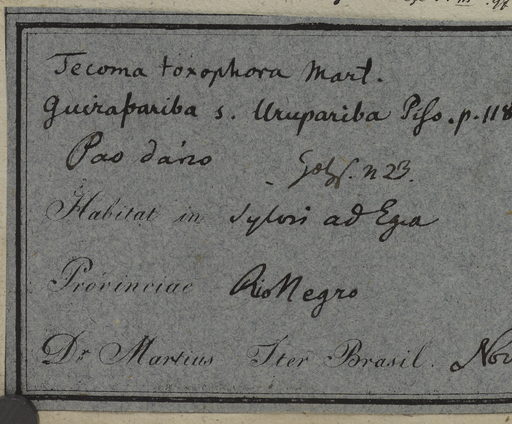 Tecoma toxophora Mart.
Guirapariba s. Urupariba Piso. p. 118
Pao d'arco
n 23.
Habitat in sylvis ad Ega
Provinciae Rio Negro
Dr. Martius Iter Brasil. Nov